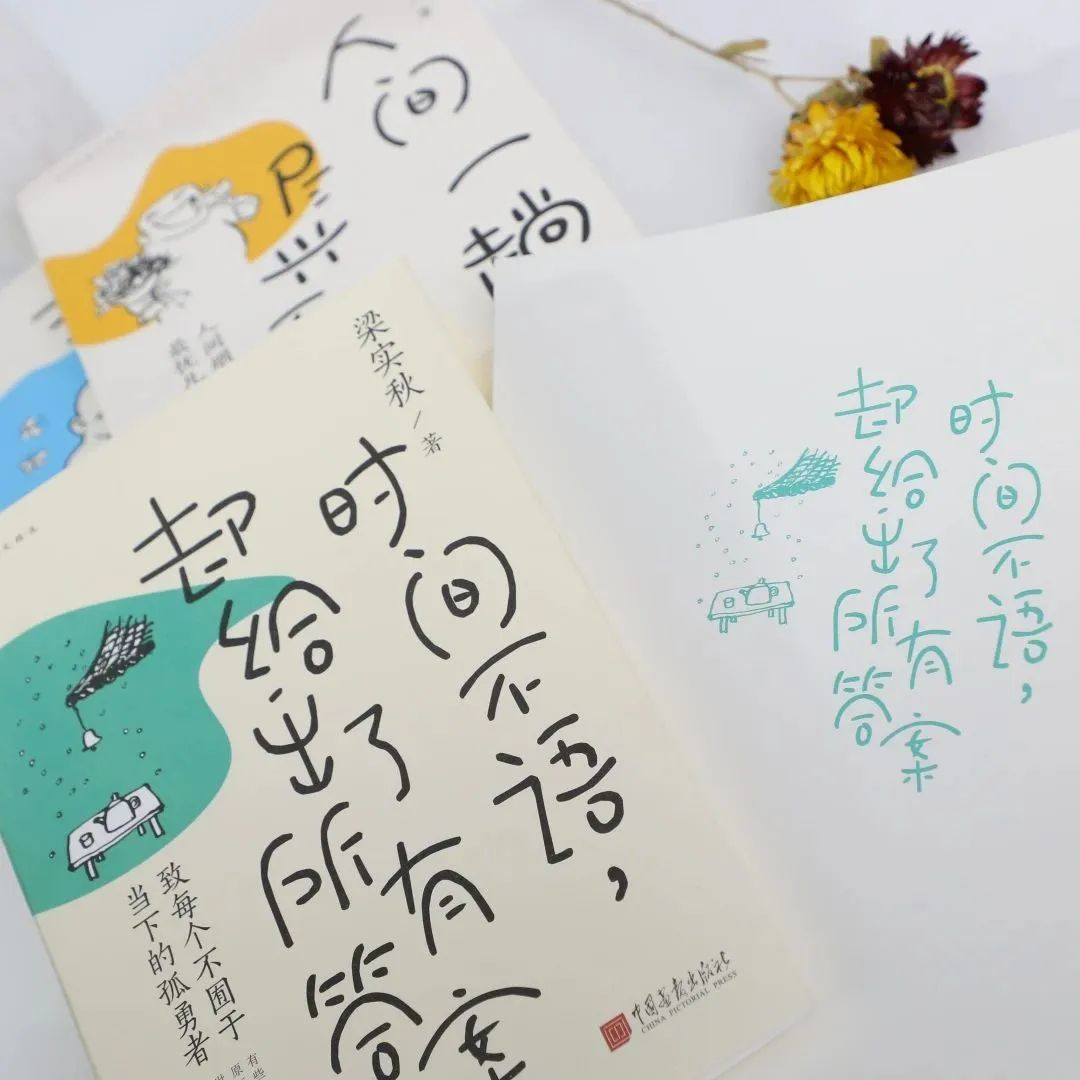 人间一趟
尽兴
人间烟
最抚凡
梁实秋/著
时间不语，
却给出了
所有
答案
致每个不囿于
当下的孤勇者
有些
原
中国画报出版社
CHINA PICTORIAL PRESS
时间不语，
却给出了
所有
答案